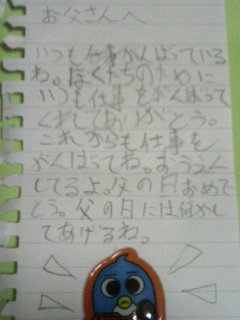 お父さんへ
いつも仕事がんばっている
ね。ぼくたちのために
いつも仕事をがんばって
くれてありがとう。
これからも仕事を
がんばってね。おうえん
してるよ。父の日おめで
とう。父の日には何かし
てあげるね。